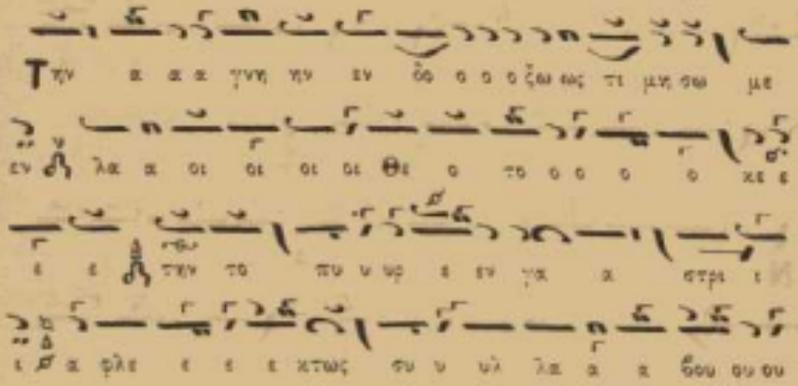 Την α α α γνη ην εν δο ο ο ο ξω ως τι μη σω με
εν λα α οι οι οι οι Θε ο το ο ο ο ο κε ε
ε ε την το πυ υ υρ ε εν γα α στρι ι
ι α φλε ε ε ε κτως συ υ υλ λα α α βου ου ου